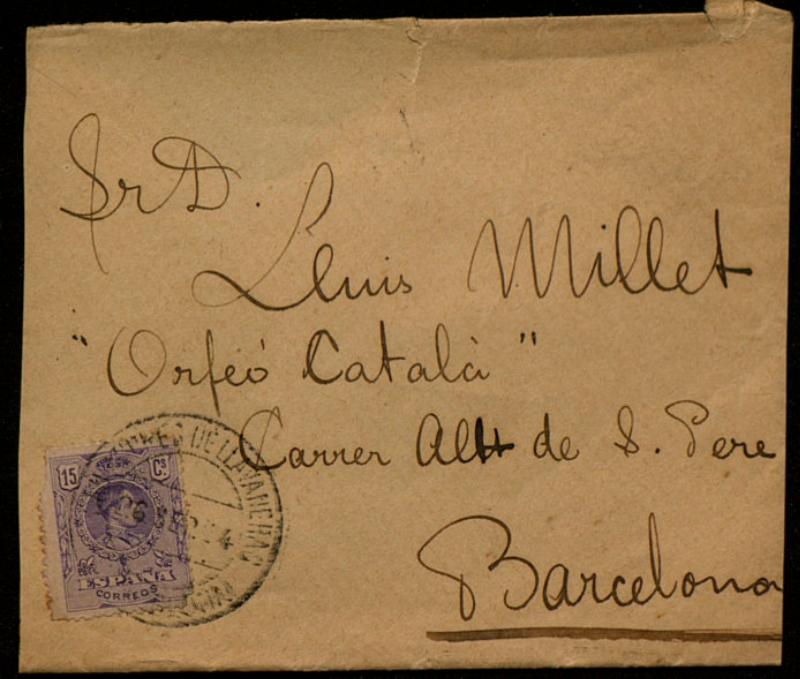 Sr D.
Lluis Millet
"Orfeó Català"
Carrer Alt de S. Pere
Barcelona
15 Cs
ESPAÑA
CORREOS
DE LLAVANERAS